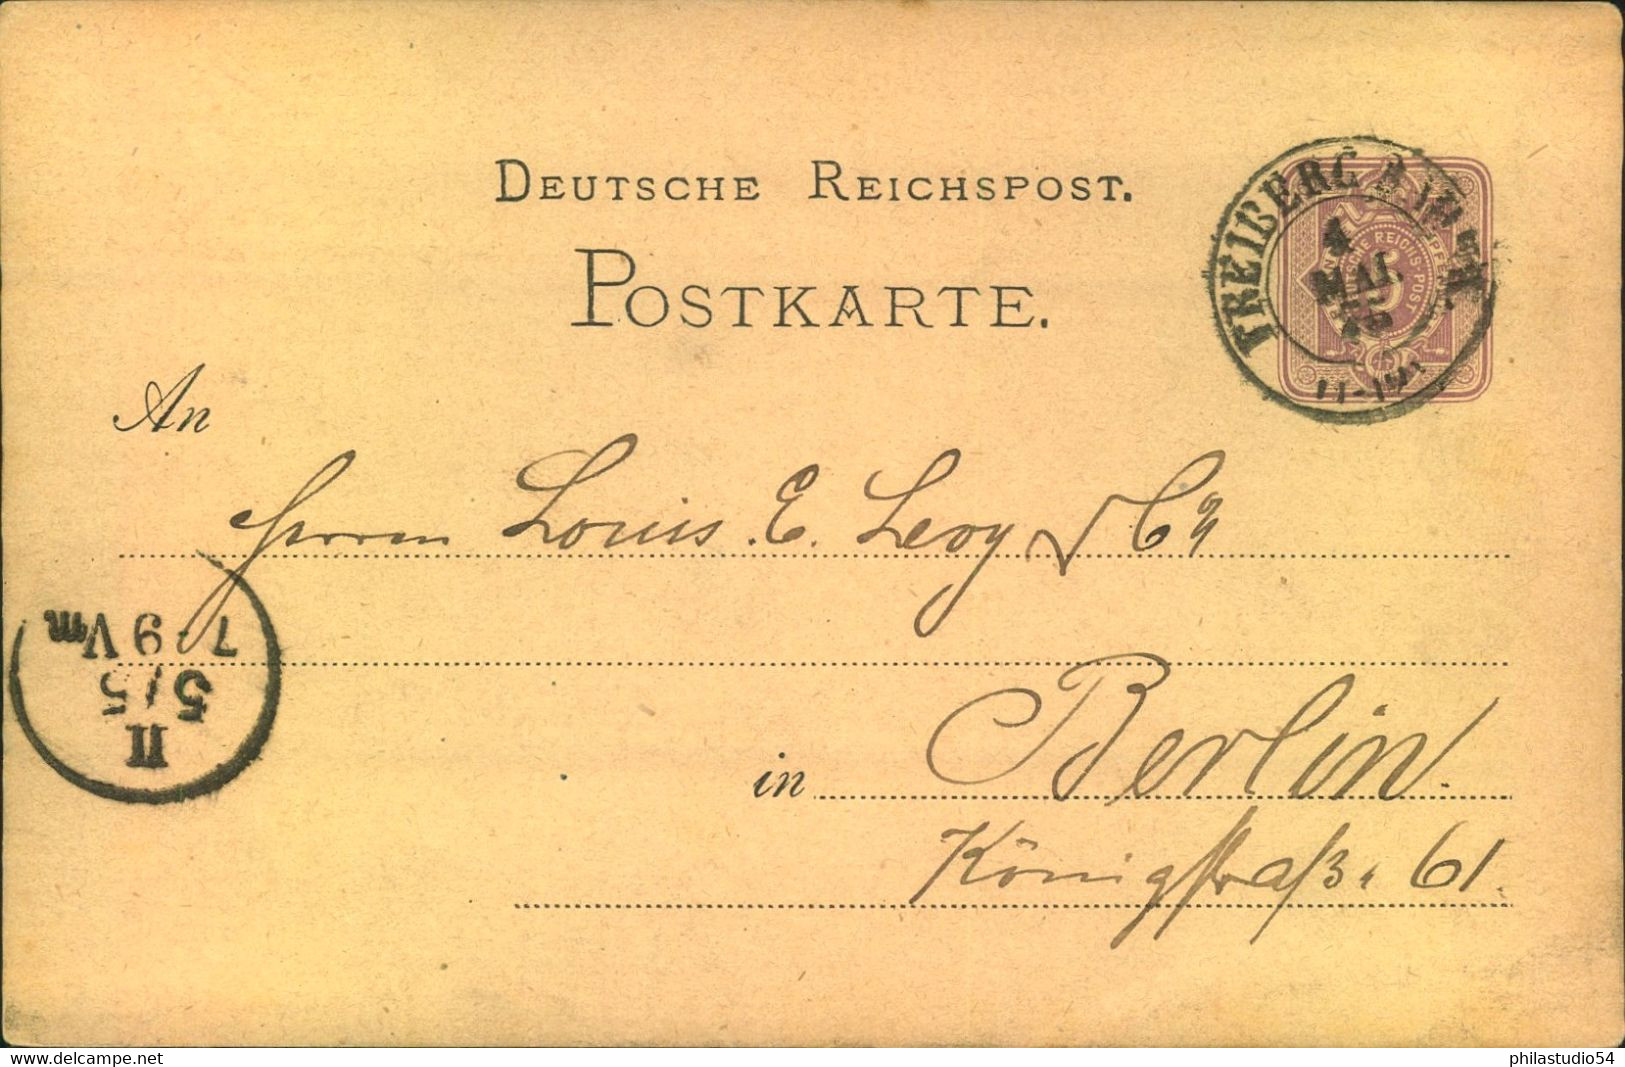 DEUTSCHE REICHSPOST.
POSTKARTE.
FREIBERG
4
MAI
11-12
An
Herrn Louis E. Levy & Co
in Berlin.
Königstraße 61.
II
5/5
7-9 Vm
delcampe.net
philastudio54